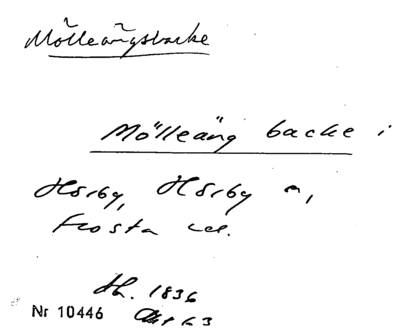 Mölleängsbacke
Mölleäng backe i
Hörby, Hörby n,
Frosta
Lh. 1836
Nr 10446